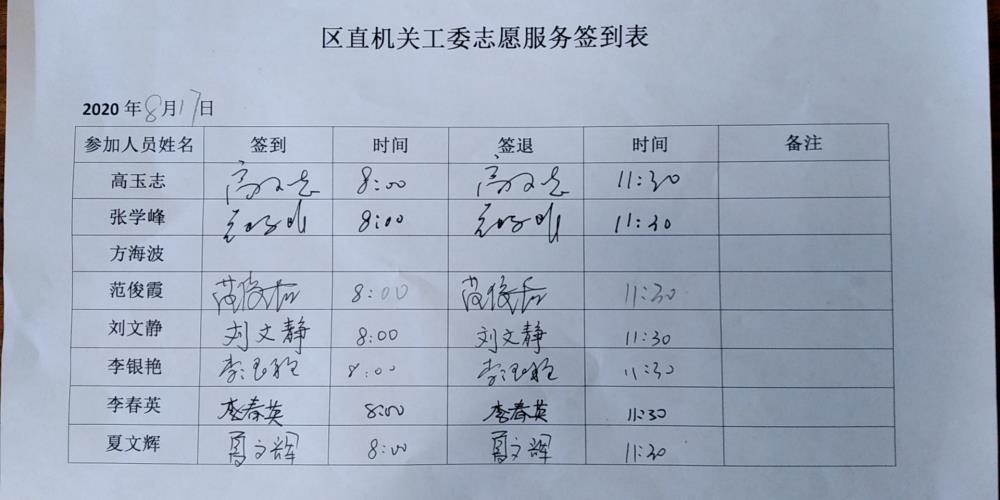 区直机关工委志愿服务签到表
2020 年8月17日
参加人员姓名 签到 时间 签退 时间 备注
高玉志 高玉志 8:00 高玉志 11:30
张学峰 8:00 11:30
方海波
范俊霞 范俊霞 8:00 范俊霞 11:30
刘文静 刘文静 8:00 刘文静 11:30
李银艳 李银艳 8:00 李银艳 11:30
李春英 李春英 8:00 李春英 11:30
夏文辉 夏文辉 8:00 夏文辉 11:30